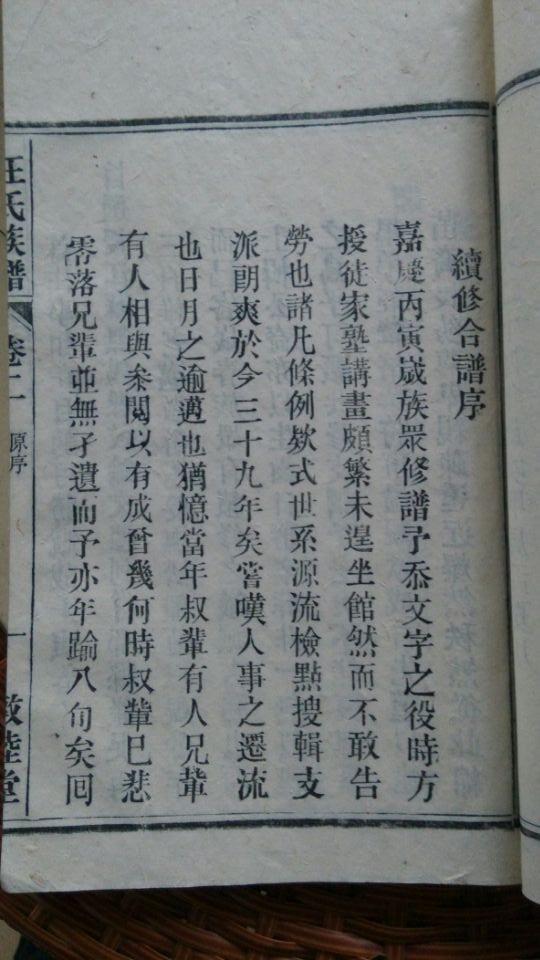 續修合譜序
嘉慶丙寅嵗族眾修譜予忝文字之役時方
授徒家塾講畫頗繁未遑坐館然而不敢告
勞也諸凡條例欵式世系源流檢點搜輯支
派朗爽於今三十九年矣嘗嘆人事之遷流
也日月之逾邁也猶憶當年叔輩有人兄軰
有人相與叅閱以有成曾幾何時叔軰已悲
零落兄輩並無孑遺而予亦年踰八旬矣囘
汪氏族譜 卷二 原序 一 敦睦堂